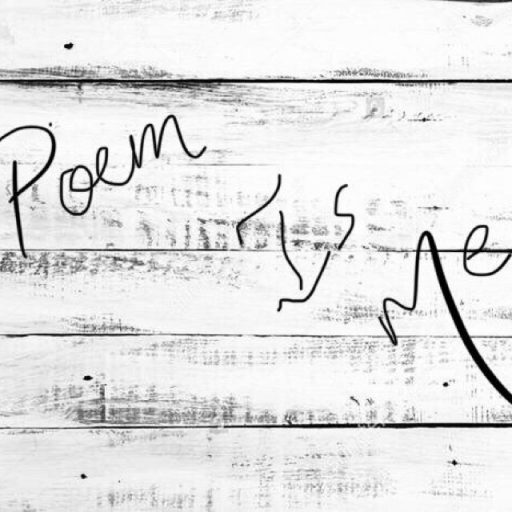 Poem Is Me